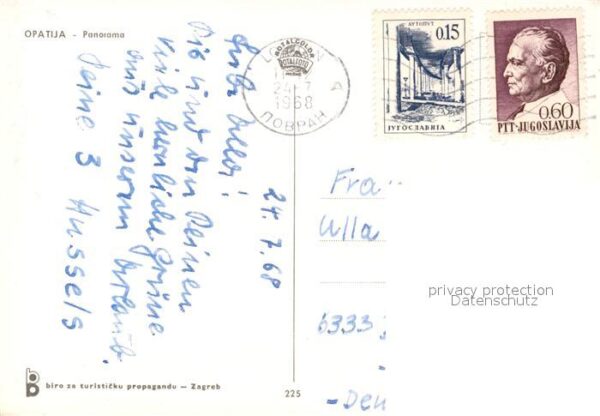 OPATIJA - Panorama
24.7.68
Liebe Ulla!
Dir und den Deinen
viele herzliche Grüße
aus unserem Urlaub.
Deine 3 Hussels
ROTALCOLOR
24-7
1968
ЛОВРАН
0.15
ЈУГОСЛАВИЈА
0.60
PTT-JUGOSLAVIJA
Fra
Ulla
6333
-Deu
privacy protection
Datenschutz
biro za turističku propagandu – Zagreb
225